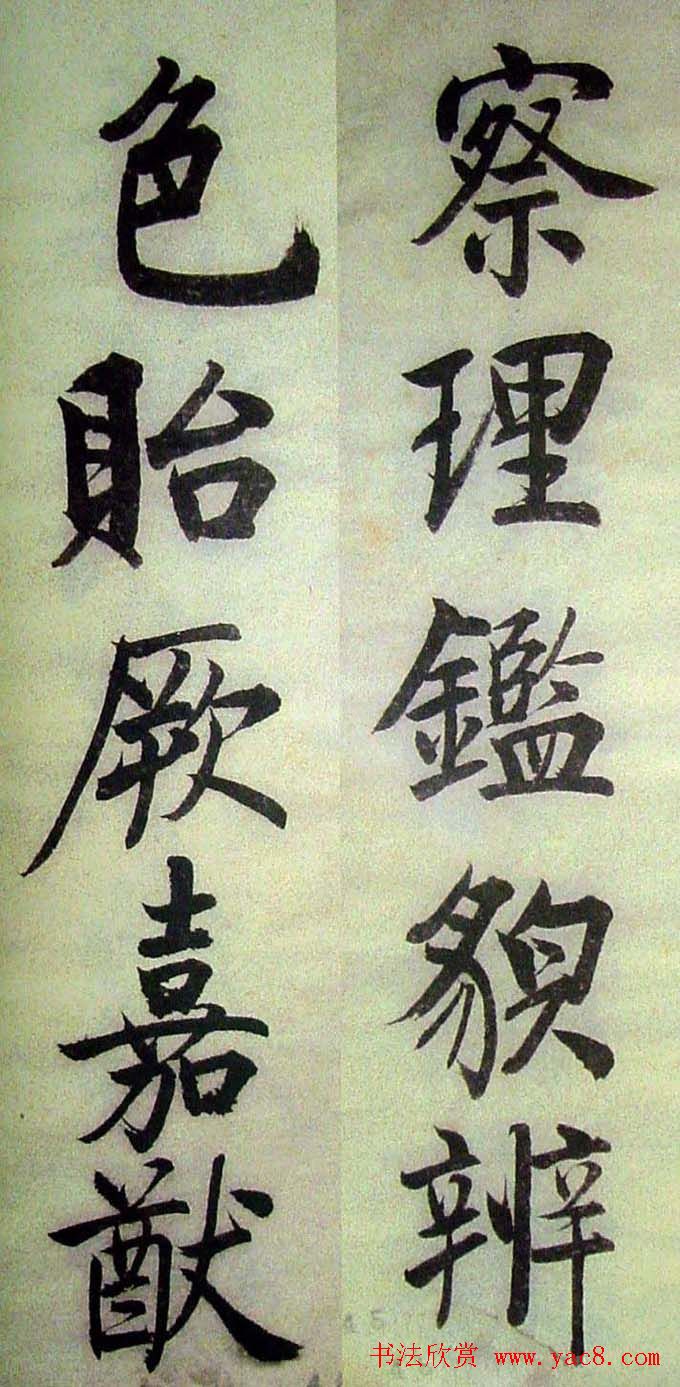 察理鑑貌辨
色貽厥嘉猷
书法欣赏 www.yac8.com